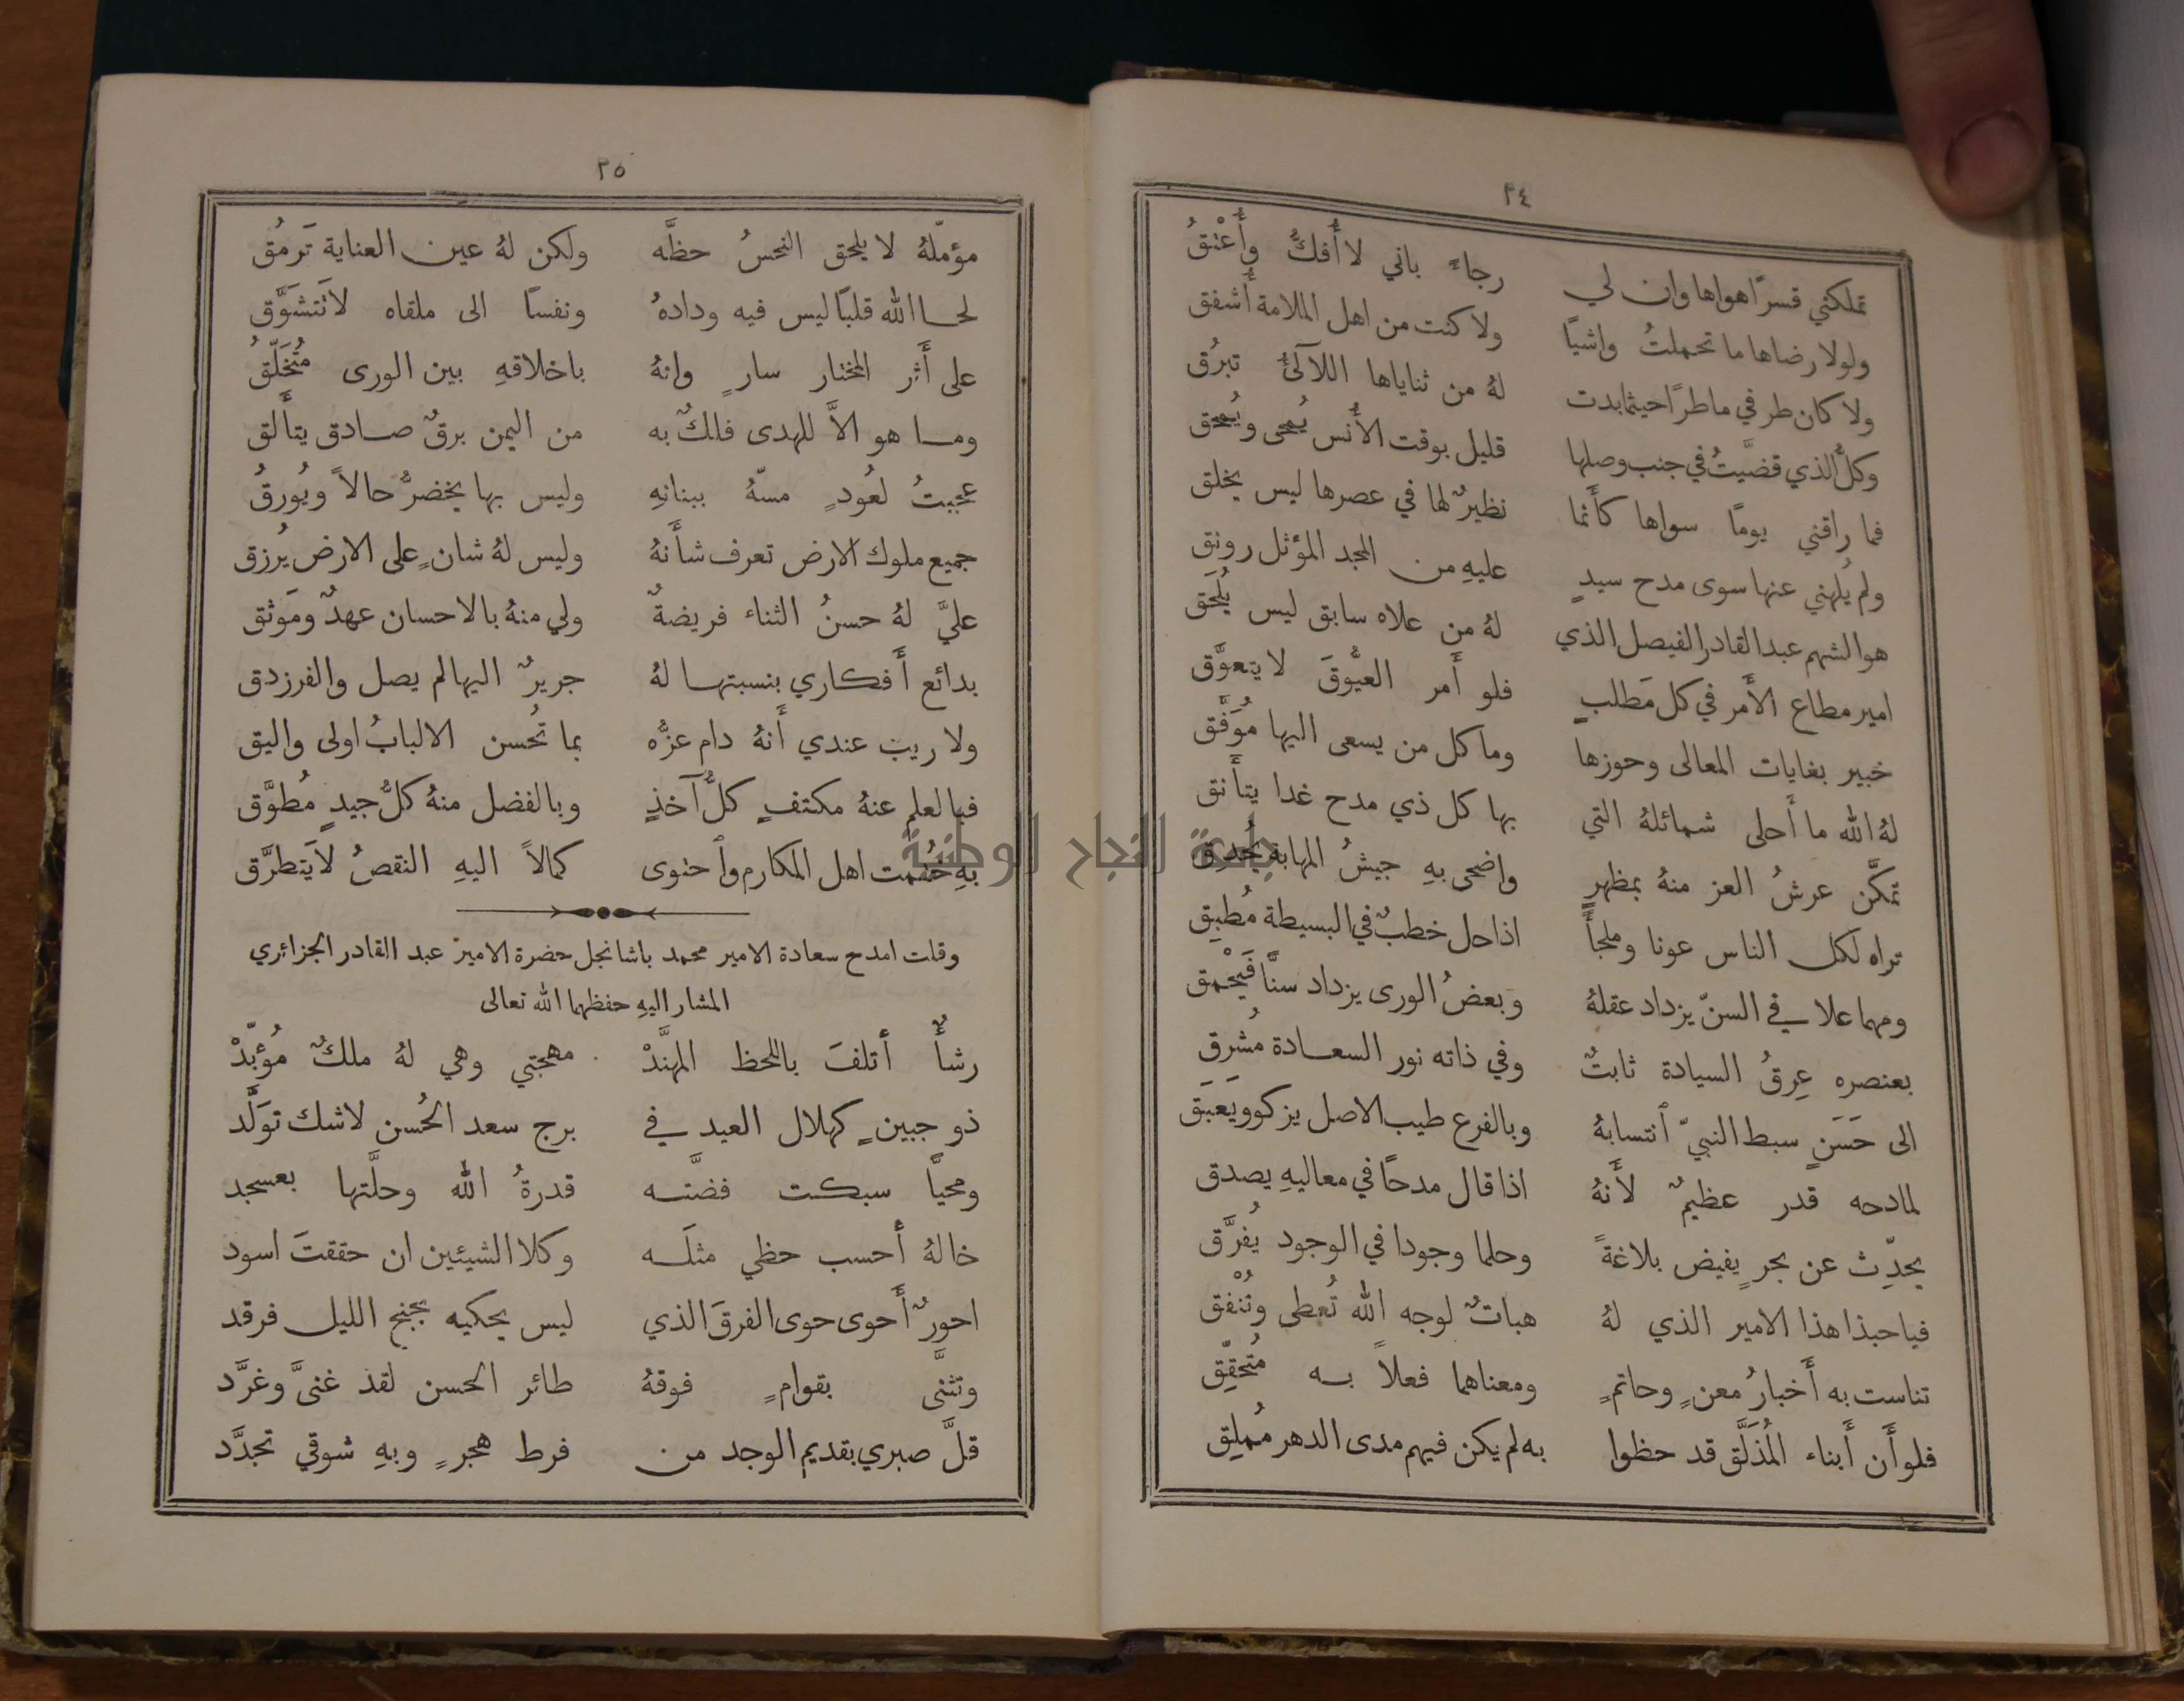 ٢٤
تملكني قسرًا هواها وان لي رجاءً باني لا أُفكُّ وأُعْتقُ
ولولا رضاها ما تحملتُ واشيًا ولا كنت من اهل الملامة أُشفق
ولا كان طرفي ماطرًا حيثما بدت لهُ من ثناياها اللآلئُ تبرُق
وكلُّ الذي قضَّيتُ في جنب وصلها قليل بوقت الأُنس يُمحى ويُمحق
فما راقني يومًا سواها كأَنما نظيرٌ لها في عصرها ليس يخلق
ولم يُلهني عنها سوى مدح سيدٍ عليهِ من المجد المؤثل رونق
هو الشهم عبد القادر الفيصل الذي لهُ من علاه سابق ليس يُلحَق
امير مطاع الأَمر في كل مَطلبٍ فلو أَمر العيُّوقَ لا يتعوَّق
خبير بغايات المعالى وحوزها وما كل من يسعى اليها مُوَفَّق
لهُ الله ما أَحلى شمائلهُ التي بها كل ذي مدح غدا يتأَنق
تمكَّن عرشُ العز منهُ بمظهرٍ واضحى بهِ جيشُ المهابة يُحدِق
تراه لكل الناس عونا وملجأً اذا حل خطبٌ في البسيطة مُطبِق
ومهما علا في السنّ يزداد عقلهُ وبعضُ الورى يزداد سنًّا فَيَحْمق
بعنصره عِرقُ السيادة ثابتٌ وفي ذاته نور السعادة مُشرِق
الى حَسَنٍ سبط النبيّ ٱنتسابهُ وبالفرع طيب الاصل يزكو ويَعبَق
لمادحه قدر عظيمٌ لأَنهُ اذا قال مدحًا في معاليهِ يصدق
يحدِّث عن بحرٍ يفيض بلاغةً وحلما وجودا في الوجود يُفرَّق
فيا حبذا هذا الامير الذي لهُ هباتٌ لوجه الله تُعطى وتُنْفق
تناست به أَخبارُ معنٍ وحاتمٍ ومعناهما فعلاً به مُتحقِّق
فلو أَن أَبناء المُذَلَّق قد حظوا به لم يكن فيهم مدى الدهر مُملِق
٢٥
مؤمّلهُ لا يلحق النحسُ حظَّه ولكن لهُ عين العناية تَرمُق
لحا الله قلبًا ليس فيه ودادهُ ونفسًا الى ملقاه لا تَتشَوَّق
على أَثر المختار سارٍ وانهُ باخلاقهِ بين الورى مُتَخَلِّقُ
وما هو الاَّ للهدى فلكٌ به من اليمن برقٌ صادق يتأَلق
عجبتُ لعُودٍ مسّهُ ببنانهِ وليس بها يخضرُّ حالاً ويُورقُ
جميع ملوك الارض تعرف شأَنهُ وليس لهُ شانٍ على الارض يُرزق
عليَّ لهُ حسنُ الثناء فريضةٌ ولي منهُ بالاحسان عهدٌ ومَوثق
بدائع أَفكاري بنسبتها لهُ جريرٌ اليها لم يصل والفرزدق
ولا ريب عندي أَنهُ دام عزُّه بما تُحسن الالبابُ اولى واليق
فبالعلم عنهُ مكتفٍ كلُّ آخذٍ وبالفضل منهُ كلُّ جيدٍ مُطوَّق
بهِ خُتمت اهل المكارم وٱحتوى كمالاً اليهِ النقصُ لا يَتطرَّق
وقلت امدح سعادة الامير محمد باشا نجل حضرة الامير عبد القادر الجزائري
المشار اليهِ حفظهما الله تعالى
رشأٌ أتلفَ باللحظ المهنَّدْ مهجتي وهي لهُ ملكٌ مُؤبّدْ
ذو جبينٍ كهلال العيد في برج سعد الحُسن لاشك توَلَّد
ومحيًّا سبكت فضَّته قدرةُ الله وحلَّتها بعسجد
خالهُ أحسب حظي مثلَه وكلا الشيئين ان حققتَ اسود
احورٌ أَحوى حوى الفرقَ الذي ليس يحكيه بجنح الليل فرقد
وتثنَّى بقوامٍ فوقهُ طائر الحسن لقد غنىَّ وغرَّد
قلَّ صبري بقديم الوجد من فرط هجرٍ وبهِ شوقي تجدَّد
جامعة النجاح الوطنية